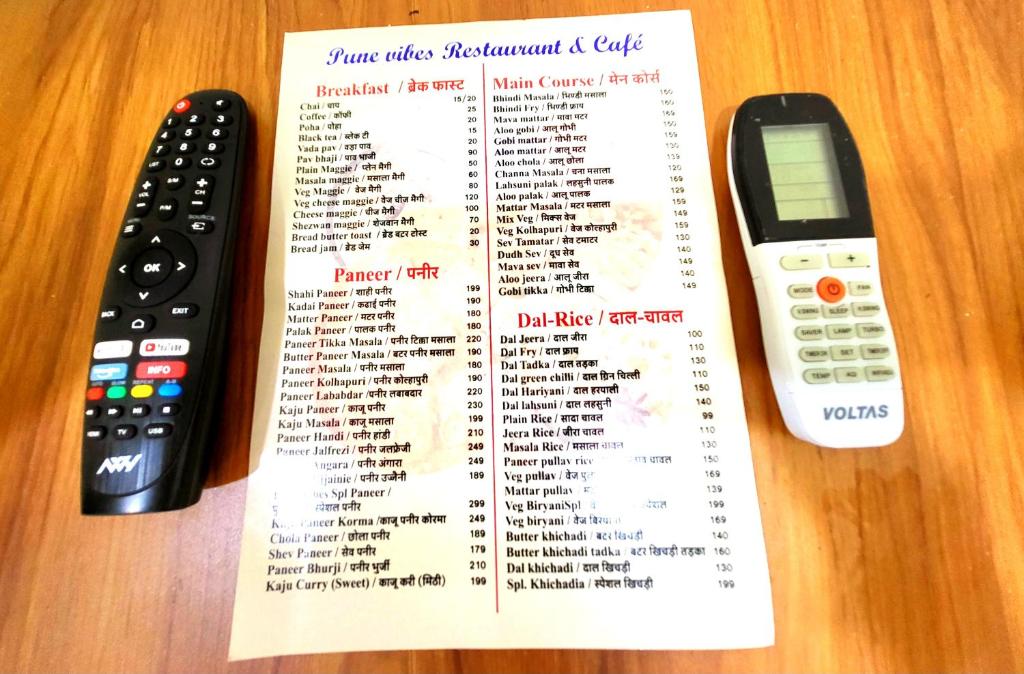 Pune vibes Restaurant & Café
Breakfast / ब्रेक फास्ट
Chai / चाय 15/20
Coffee / कॉफी 25
Poha / पोहा 20
Black tea / ब्लेक टी 15
Vada pav / वड़ा पाव 20
Pav bhaji / पाव भाजी 90
Plain Maggie / प्लेन मैगी 50
Masala maggie / मसाला मैगी 60
Veg Maggie / वेज मैगी 80
Veg cheese maggie / वेज चीज़ मैगी 120
Cheese maggie / चीज मैगी 100
Shezwan maggie / शेजवान मैगी 70
Bread butter toast / ब्रेड बटर टोस्ट 20
Bread jam / ब्रेड जेम 30
Paneer / पनीर
Shahi Paneer / शाही पनीर 199
Kadai Paneer / कढाई पनीर 190
Matter Paneer / मटर पनीर 180
Palak Paneer / पालक पनीर 180
Paneer Tikka Masala / पनीर टिक्का मसाला 220
Butter Paneer Masala / बटर पनीर मसाला 190
Paneer Masala / पनीर मसाला 180
Paneer Kolhapuri / पनीर कोल्हापुरी 190
Paneer Lababdar / पनीर लबाबदार 220
Kaju Paneer / काजू पनीर 230
Kaju Masala / काजू मसाला 249
Paneer Handi / पनीर हांडी 210
Paneer Jalfrezi / पनीर जलफ्रेजी 249
Angara / पनीर अंगारा 249
jjainie / पनीर उज्जैनी 189
Spl Paneer /
स्पेशल पनीर 299
Paneer Korma /काजू पनीर कोरमा 249
Chola Paneer / छोला पनीर 189
Shev Paneer / सेव पनीर 179
Paneer Bhurji / पनीर भुर्जी 210
Kaju Curry (Sweet) / काजू करी (मिठी) 199
Main Course / मेन कोर्स
Bhindi Masala / भिण्डी मसाला 150
Bhindi Fry / भिण्डी फ्राय 160
Mava mattar / मावा मटर 169
Aloo gobi / आलू गोभी 150
Gobi mattar / गोभी मटर 159
Aloo mattar / आलू मटर 130
Aloo chola / आलू छोला 139
Channa Masala / चना मसाला 120
Lahsuni palak / लहसुनी पालक 169
Aloo palak / आलू पालक 129
Mattar Masala / मटर मसाला 159
Mix Veg / मिक्स वेज 149
Veg Kolhapuri / वेज कोल्हापुरी 159
Sev Tamatar / सेव टमाटर 130
Dudh Sev / दूध सेव 140
Mava sev / मावा सेव 149
Aloo jeera / आलू जीरा 140
Gobi tikka / गोभी टिक्का 149
Dal-Rice / दाल-चावल
Dal Jeera / दाल जीरा 100
Dal Fry / दाल फ्राय 110
Dal Tadka / दाल तड़का 130
Dal green chilli / दाल ग्रिन चिल्ली 110
Dal Hariyani / दाल हरयाली 150
Dal lahsuni / दाल लहसुनी 140
Plain Rice / सादा चावल 99
Jeera Rice / जीरा चावल 110
Masala Rice / मसाला चावल 130
Paneer pullav rice चावल 150
Veg pullav / वेज 169
Mattar pullav 139
Veg BiryaniSpl 199
Veg biryani / वेज 169
Butter khichadi / बटर खिचड़ी 140
Butter khichadi tadka / बटर खिचड़ी तड़का 160
Dal khichadi / दाल खिचड़ी 130
Spl. Khichadia / स्पेशल खिचड़ी 199
1 2 3
4 5 6
7 8 9
LIST 0
VOL CH
SOURCE
OK
EXIT
INFO
REPEAT A-B
TV USB
MODE FAN
SLEEP
LAMP TURBO
SET
TEMP
VOLTAS